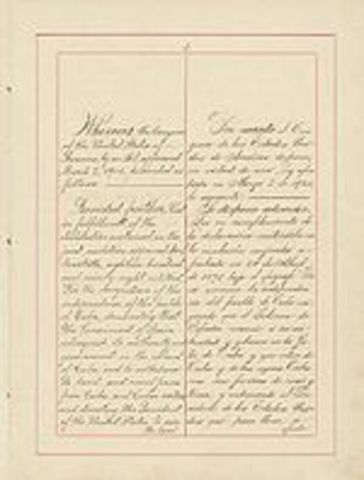 Whereas the Congress
of the United States of
America, by an Act approved
March 2, 1901, provided as
follows:
Provided further, That
in fulfillment of the
declaration contained in the
joint resolution approved April
twentieth, eighteen hundred
and ninety eight, entitled
"For the recognition of the
independence of the people
of Cuba, demanding that
the Government of Spain
relinquish its authority and
government in the island
of Cuba, and to withdraw
its land and naval forces
from Cuba and Cuban waters
and directing the President
of the United States to use
the land
Por cuanto el Con-
greso de los Estados Uni-
dos de América dispuso,
en virtud de una Ley apro-
bada en Marzo 2 de 1901,
lo siguiente:
Se dispone además,
Que en cumplimiento de
la declaración contenida en
la resolución conjunta a-
probada en 20 de Abril
de 1898 bajo el epígrafe "Pa-
ra reconocer la independencia
del pueblo de Cuba
que el Gobierno de
España renuncie á su au-
toridad y gobierno en la Is-
la de Cuba, y que retire de
Cuba y de las aguas Cuba-
nas sus fuerzas de mar y
tierra, y ordenando al Pre-
sidente de los Estados Uni-
dos que para llevar á
efecto